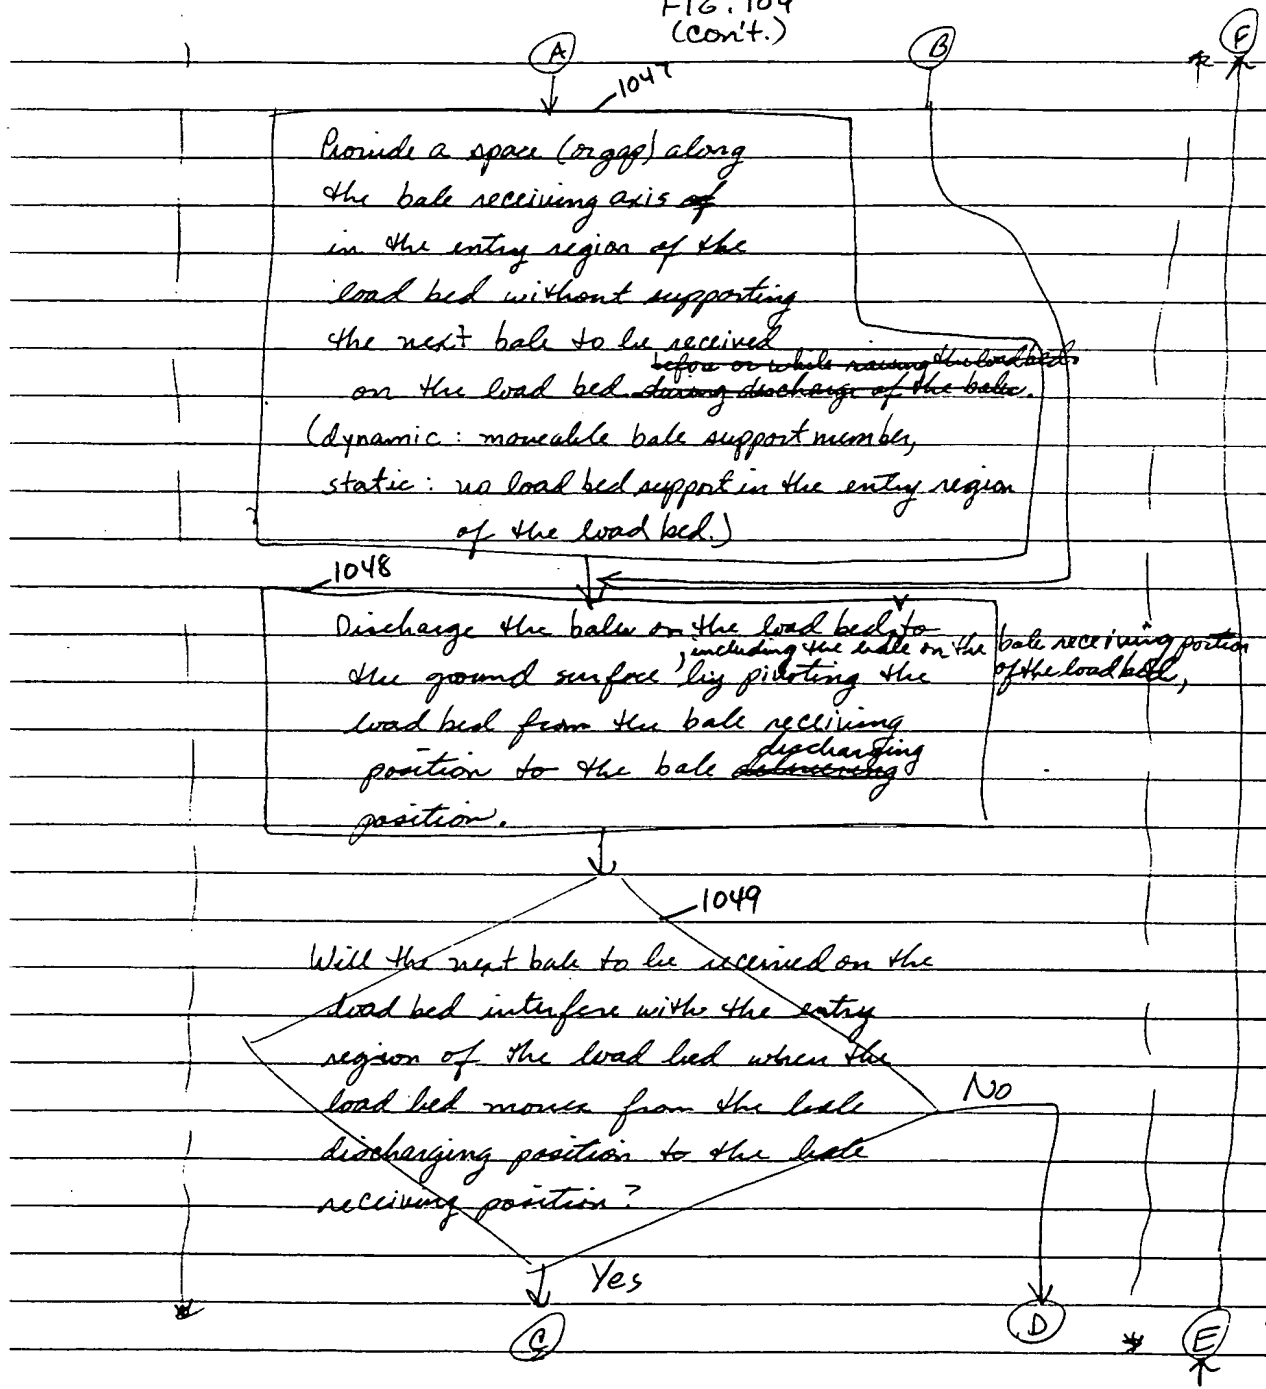 FIG. 104
(con't.)
A
B
F
1047
Provide a space (or gap) along
the bale receiving axis of
in the entry region of the
load bed without supporting
the next bale to be received
before or while raising the load bed
on the load bed during discharge of the bales.
(dynamic: moveable bale support member,
static: no load bed support in the entry region
of the load bed.)
1048
Discharge the bales on the load bed to
, including the bale on the bale receiving portion
of the load bed,
the ground surface by pivoting the
load bed from the bale receiving
discharging
position to the bale delivering
position.
1049
Will the next bale to be received on the
load bed interfere with the entry
region of the load bed when the
load bed moves from the bale
No
discharging position to the bale
receiving position?
Yes
C
D
E